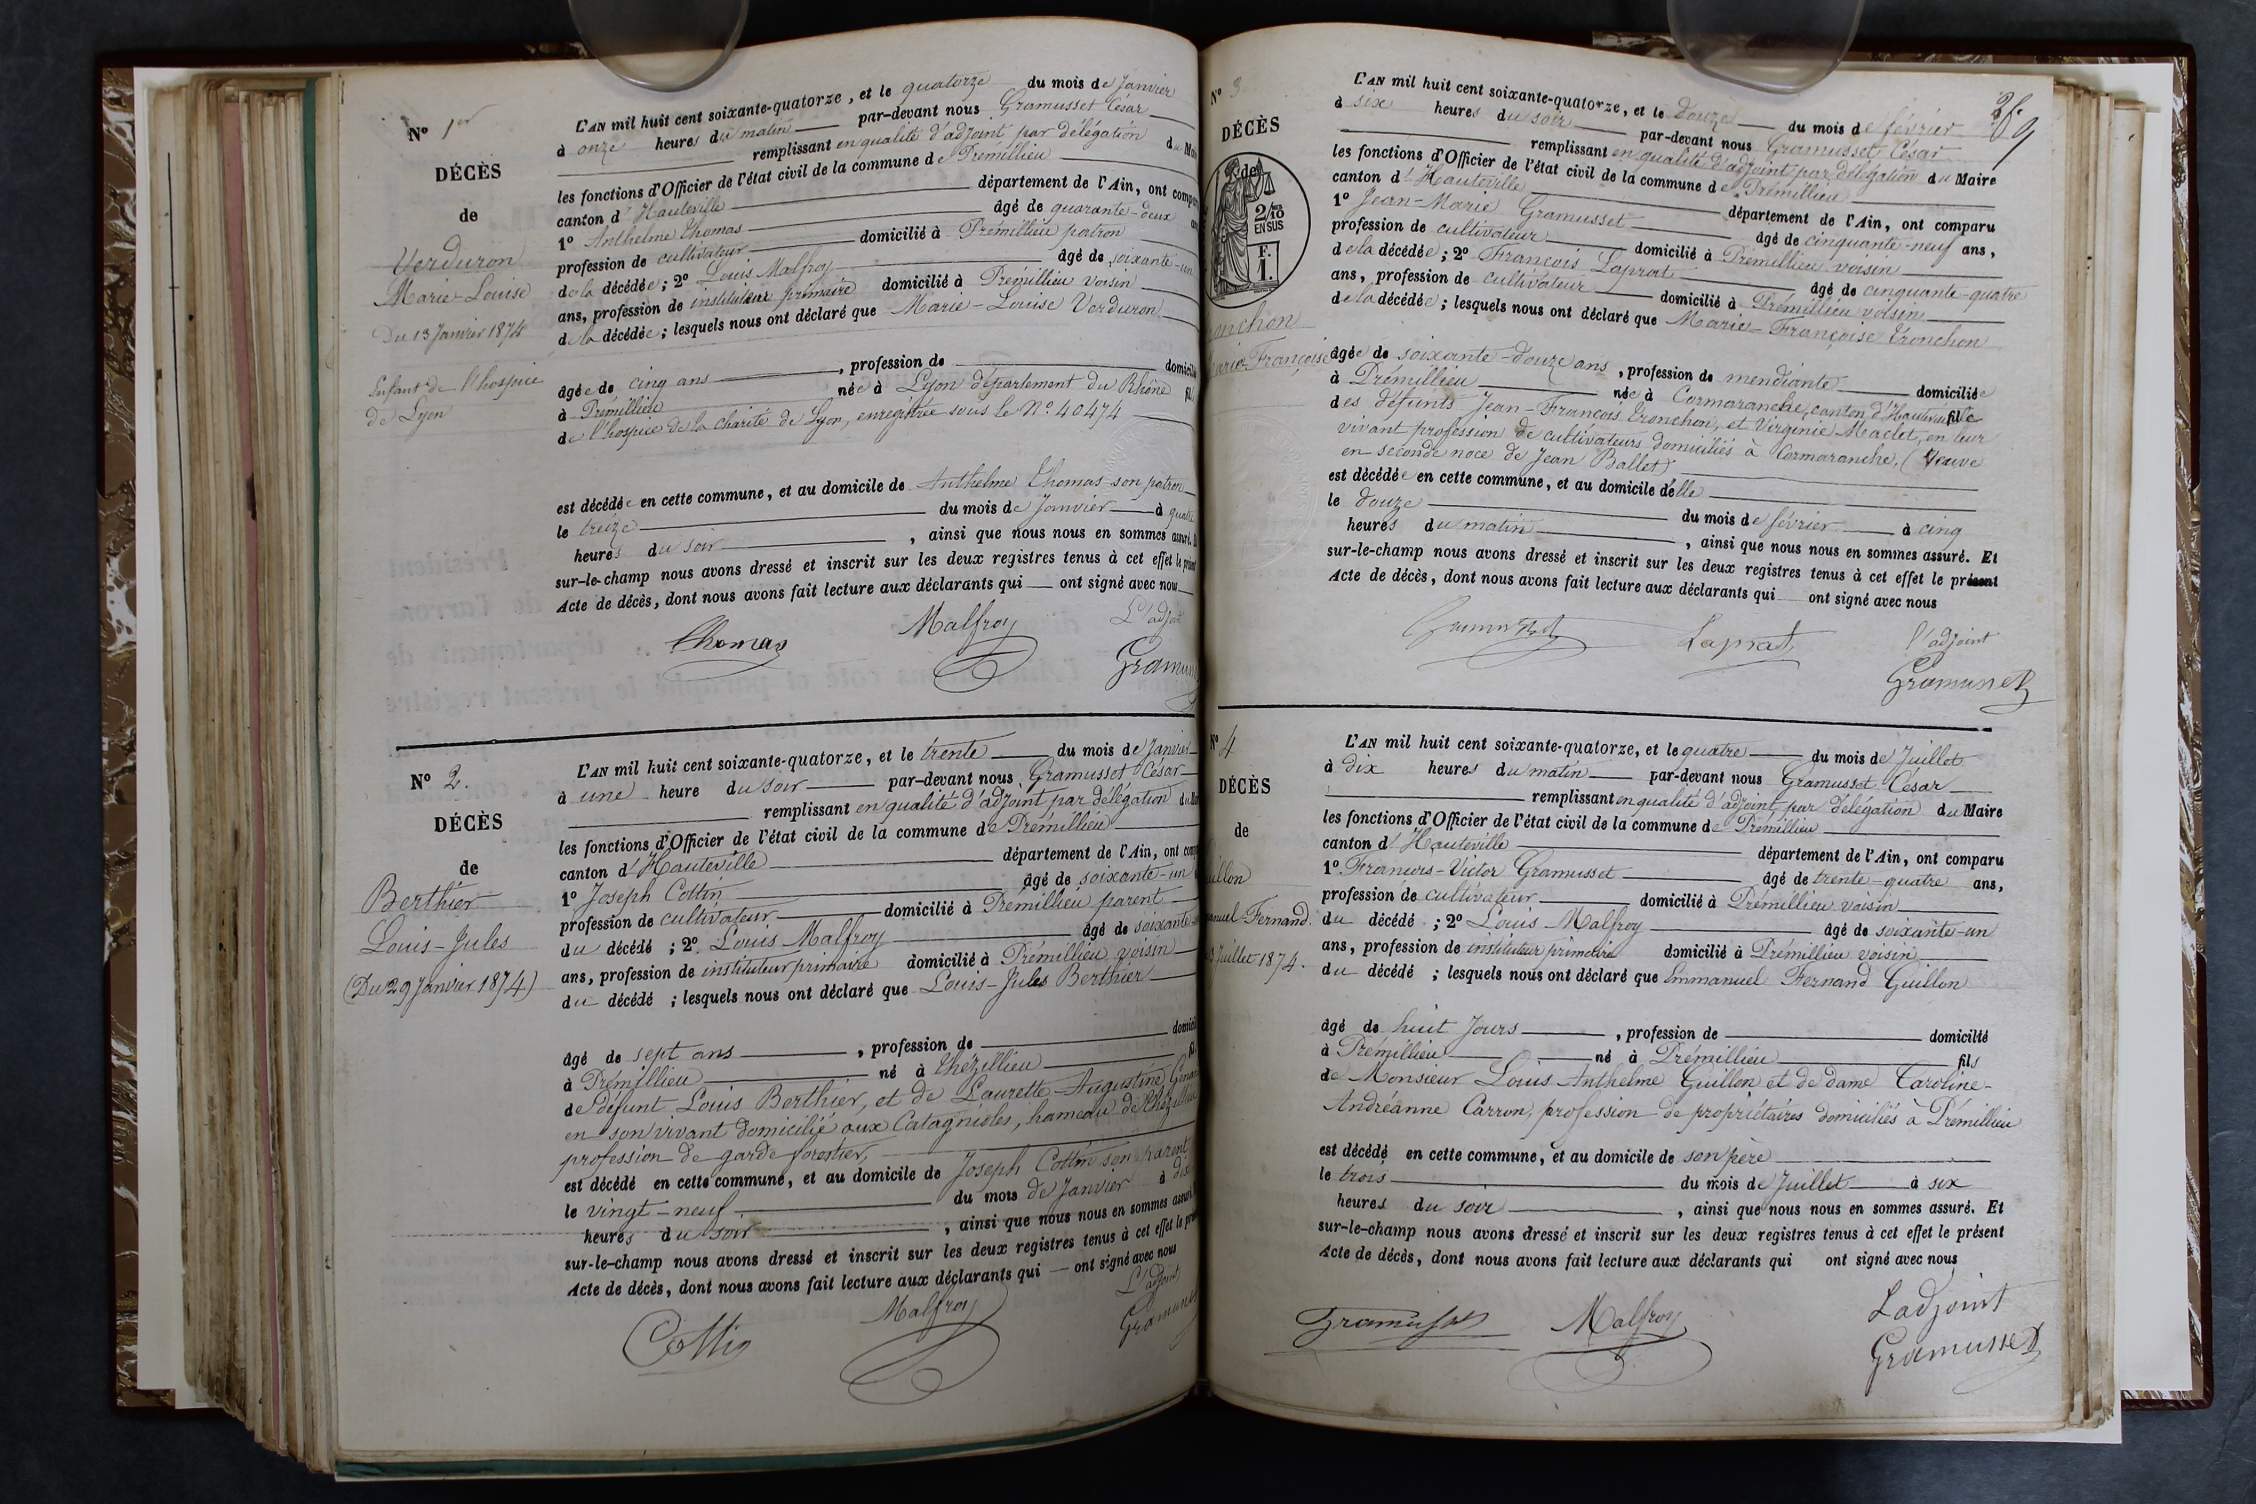 N° 1er
DÉCÈS
de
Verduron
Marie-Louise
Du 13 Janvier 1874
Enfant de l'hospice
de Lyon
L'AN mil huit cent soixante-quatorze, et le quatorze du mois de Janvier
à onze heures du matin par-devant nous Gramusset César
remplissant en qualité d'adjoint par délégation du
les fonctions d'Officier de l'état civil de la commune de Prémillieu
canton d'Hauteville département de l'Ain, ont
1° Anthelme Thomas âgé de quarante-deux
profession de cultivateur domicilié à Prémillieu patron
de la décédée; 2° Louis Malfroy âgé de soixante-un
ans, profession de instituteur primaire domicilié à Prémillieu voisin
de la décédée; lesquels nous ont déclaré que Marie-Louise Verduron
âgée de cinq ans, profession de
à Prémillieu née à Lyon département du Rhône
de l'hospice de la charité de Lyon, enregistrée sous le N° 40474
est décédée en cette commune, et au domicile de Anthelme Thomas son patron
le treize du mois de Janvier à
heures du soir, ainsi que nous nous en sommes assuré.
sur-le-champ nous avons dressé et inscrit sur les deux registres tenus à cet effet le
Acte de décès, dont nous avons fait lecture aux déclarants qui ont signé avec nous
Thomas Malfroy L'adjoint
N° 2.
DÉCÈS
de
Berthier
Louis-Jules
(Du 29 Janvier 1874)
L'AN mil huit cent soixante-quatorze, et le trente du mois de Janvier
à une heure du soir par-devant nous Gramusset César
remplissant en qualité d'adjoint par délégation du
les fonctions d'Officier de l'état civil de la commune de Prémillieu
canton d'Hauteville département de l'Ain, ont
1° Joseph Cottin âgé de soixante-un
profession de cultivateur domicilié à Prémillieu parent
du décédé; 2° Louis Malfroy âgé de soixante
ans, profession de instituteur primaire domicilié à Prémillieu voisin
du décédé; lesquels nous ont déclaré que Louis-Jules Berthier
âgé de sept ans, profession de
à Prémillieu né à Thézillieu
de défunt Louis Berthier, et de Laurette-Augustine
en son vivant domicilié aux Catagnioles, hameau de Thézillieu
profession de garde forestier,
est décédé en cette commune, et au domicile de Joseph Cottin son parent
le vingt-neuf du mois de Janvier à dix
heures du soir, ainsi que nous nous en sommes assuré
sur-le-champ nous avons dressé et inscrit sur les deux registres tenus à cet effet le
Acte de décès, dont nous avons fait lecture aux déclarants qui ont signé avec nous
Cottin Malfroy L'adjoint
N° 3
DÉCÈS
de
2/10 EN SUS
F. 1.
Marie Françoise
L'AN mil huit cent soixante-quatorze, et le douze du mois de février
à six heures du soir par-devant nous Gramusset César
remplissant en qualité d'adjoint par délégation du Maire
les fonctions d'Officier de l'état civil de la commune de Prémillieu
canton d'Hauteville département de l'Ain, ont comparu
1° Jean-Marie Gramusset âgé de cinquante-neuf ans,
profession de cultivateur domicilié à Prémillieu voisin
de la décédée; 2° François Laprat âgé de cinquante-quatre
ans, profession de cultivateur domicilié à Prémillieu voisin
de la décédée; lesquels nous ont déclaré que Marie-Françoise Tronchon
âgée de soixante-douze ans, profession de mendiante domiciliée
à Prémillieu née à Cormaranche, canton d'Hauteville fille
des défunts Jean-François Tronchon, et Virginie Maclet, en leur
vivant profession de cultivateurs domiciliés à Cormaranche, (Veuve
en seconde noce de Jean Ballet)
est décédée en cette commune, et au domicile d'elle
le douze du mois de février à cinq
heures du matin, ainsi que nous nous en sommes assuré. Et
sur-le-champ nous avons dressé et inscrit sur les deux registres tenus à cet effet le présent
Acte de décès, dont nous avons fait lecture aux déclarants qui ont signé avec nous
Gramusset Laprat l'adjoint
Gramusset
N° 4
DÉCÈS
de
L'AN mil huit cent soixante-quatorze, et le quatre du mois de Juillet
à dix heures du matin par-devant nous Gramusset César
remplissant en qualité d'adjoint par délégation du Maire
les fonctions d'Officier de l'état civil de la commune de Prémillieu
canton d'Hauteville département de l'Ain, ont comparu
1° François-Victor Gramusset âgé de trente-quatre ans,
profession de cultivateur domicilié à Prémillieu voisin
du décédé; 2° Louis Malfroy âgé de soixante-un
ans, profession de instituteur primaire domicilié à Prémillieu voisin
du décédé; lesquels nous ont déclaré que Emmanuel Fernand Guillon
âgé de huit Jours, profession de domicilié
à Prémillieu né à Prémillieu fils
de Monsieur Louis-Anthelme Guillon et de dame Caroline-
Andréanne Carron, profession de propriétaires domiciliés à Prémillieu
est décédé en cette commune, et au domicile de son père
le trois du mois de Juillet à six
heures du soir, ainsi que nous nous en sommes assuré. Et
sur-le-champ nous avons dressé et inscrit sur les deux registres tenus à cet effet le présent
Acte de décès, dont nous avons fait lecture aux déclarants qui ont signé avec nous
Gramusset Malfroy L'adjoint
Gramusset